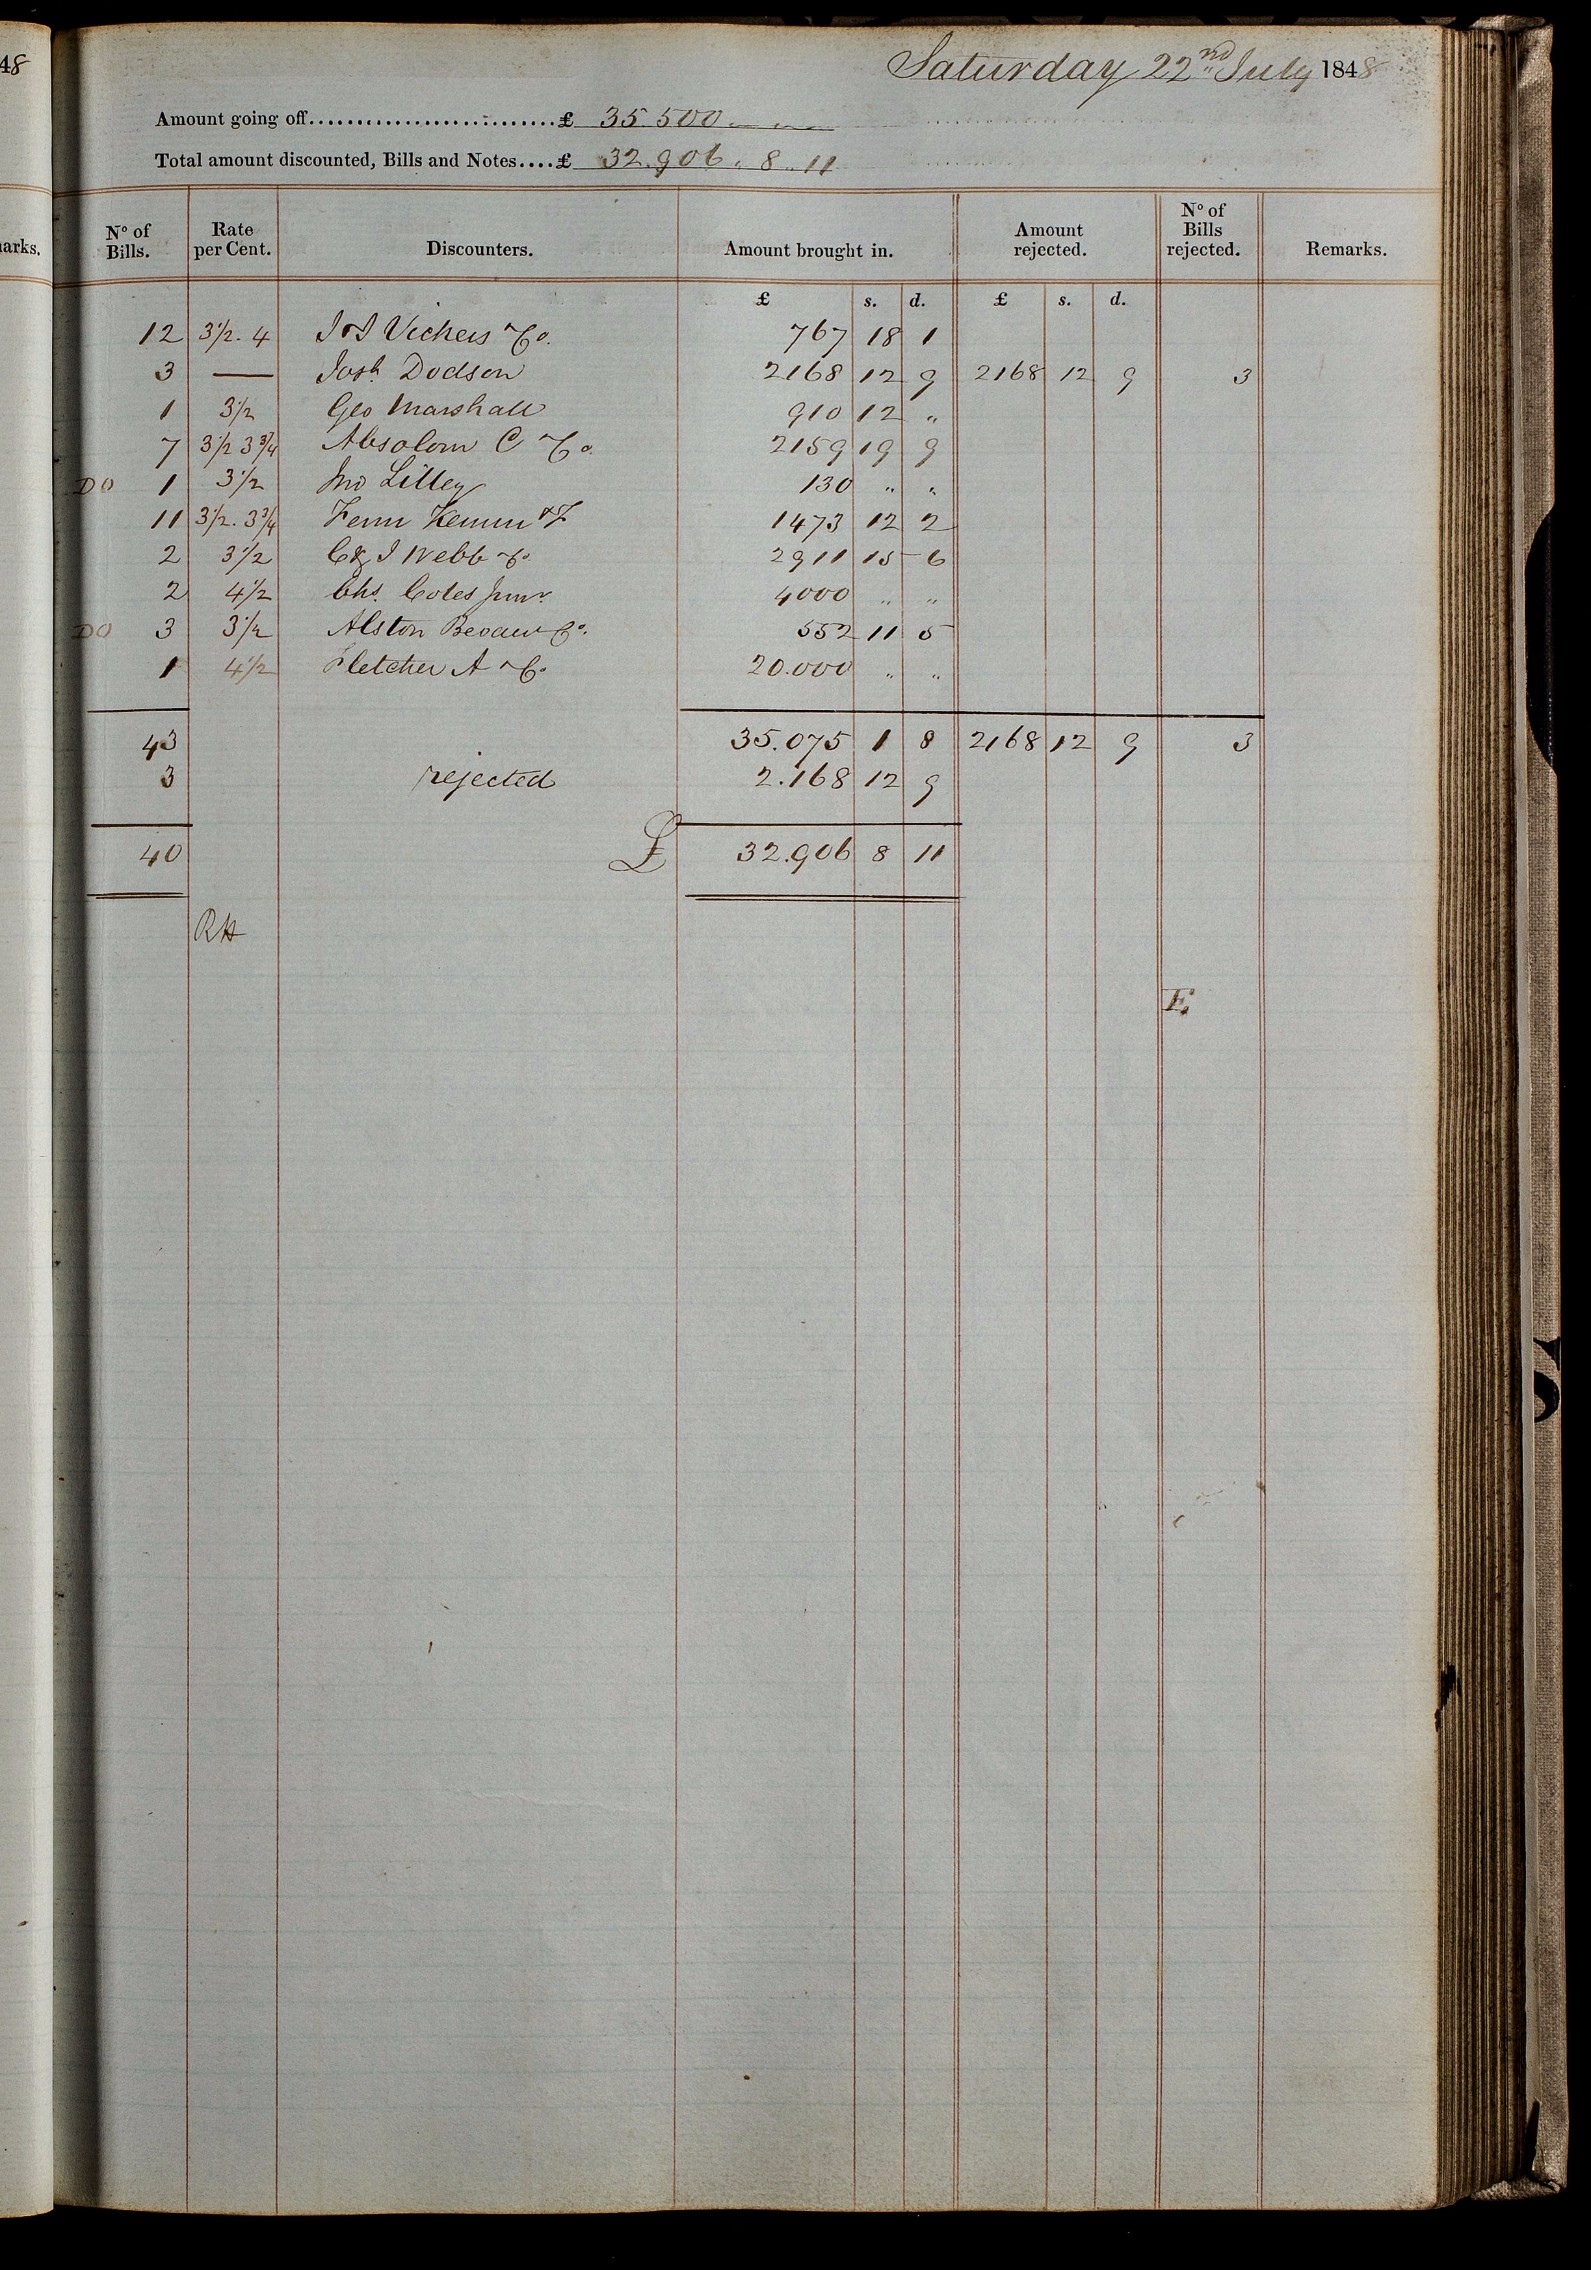 48
Saturday 22nd July 1848
Amount going off..........................£ 35.500 " "
Total amount discounted, Bills and Notes....£ 32.906 . 8 . 11
arks.
No of Bills. Rate per Cent. Discounters. Amount brought in. Amount rejected. No of Bills rejected. Remarks.
£ s. d. £ s. d.
12 3 1/2 . 4 J & J Vickers & Co. 767 18 1
3 — Josh Dodson 2168 12 9 2168 12 9 3
1 3 1/2 Geo Marshall 910 12 "
7 3 1/2 3 3/4 Absolom C & Co. 2159 19 9
DO 1 3 1/2 Jno Lilley 130 " "
11 3 1/2 . 3 3/4 Fenn & F 1473 12 2
2 3 1/2 C & J Webb & Co 2911 15 6
2 4 1/2 Chs. Coles Junr. 4000 " "
DO 3 3 1/2 Alston & Co. 552 11 5
1 4 1/2 Fletcher A & Co 20.000 " "
43 35.075 1 8 2168 12 9 3
3 rejected 2.168 12 9
40 £ 32.906 8 11
RH
E